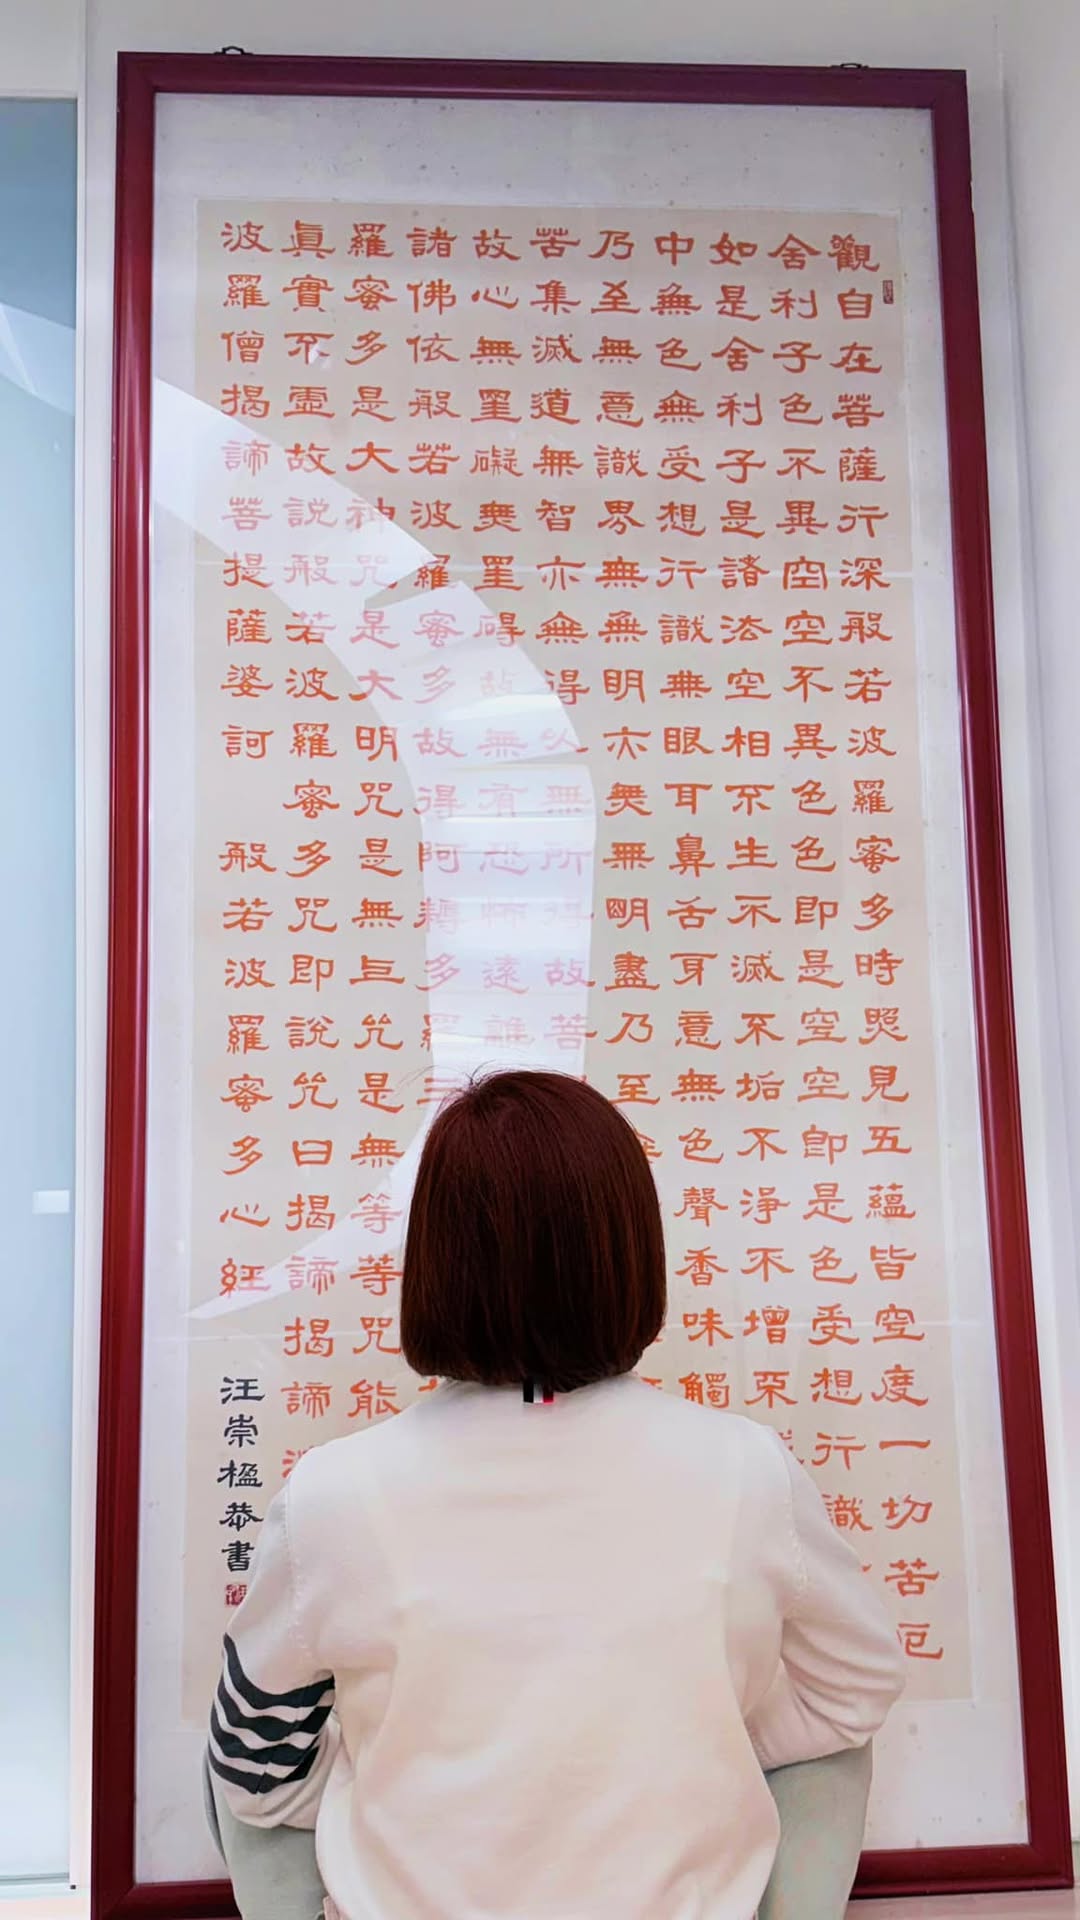 觀自在菩薩行深般若波羅蜜多時照見五蘊皆空度一切苦厄
舍利子色不異空空不異色色即是空空即是色受想行識
如是舍利子是諸法空相不生不滅不垢不淨不增不
中無色無受想行識無眼耳鼻舌身意無色聲香味觸
乃至無意識界無無明亦無無明盡乃至
苦集滅道無智亦無得以無所得故菩
故心無罣礙無罣碍故無有恐怖遠離
諸佛依般若波羅蜜多故得阿耨多羅三
羅蜜多是大神咒是大明咒是無上咒是無等等咒能
眞實不虛故說般若波羅蜜多咒即說咒曰揭諦揭諦
波羅僧揭諦菩提薩婆訶 般若波羅蜜多心經
汪崇楹恭書